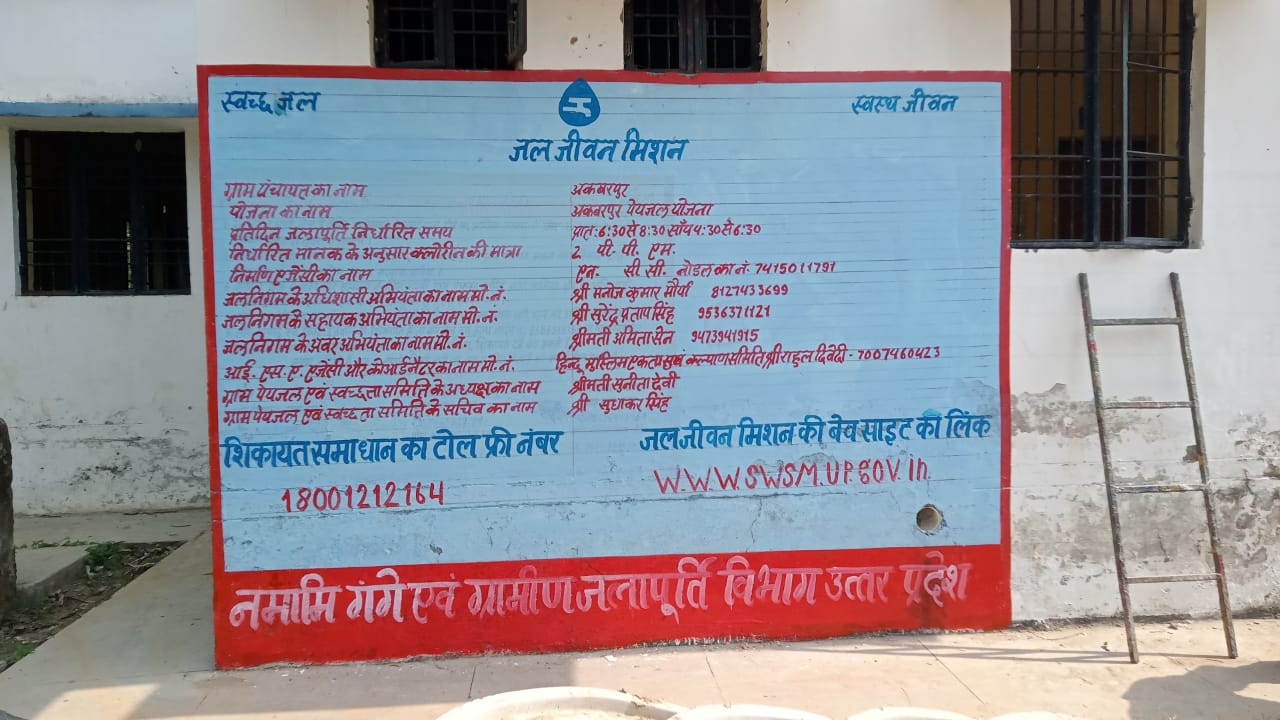 स्वच्छ जल स्वस्थ जीवन
जल जीवन मिशन
ग्राम पंचायत का नाम अकबरपुर
योजना का नाम अकबरपुर पेयजल योजना
प्रतिदिन जलापूर्ति निर्धारित समय प्रातः 6:30 से 8:30 साँय 4:30 से 6:30
निर्धारित मानक के अनुसार क्लोरीन की मात्रा 2 पी. पी. एम.
निर्माण एजेंसी का नाम एन. सी. सी. नोडल का नं. 7415011791
जलनिगम के अधिशासी अभियंता का नाम मो. नं. श्री मनोज कुमार मौर्या 8127433699
जलनिगम के सहायक अभियंता का नाम मो. नं. श्री सुरेंद्र प्रताप सिंह 9536371121
जलनिगम के अवर अभियंता का नाम मो. नं. श्रीमती अमिता सेन 9473941915
आई. एस. ए. एजेंसी और कोआर्डिनेटर का नाम मो. नं. हिन्दू मुस्लिम एकता एवं कल्याण समिति श्री राहुल द्विवेदी - 7007460423
ग्राम पेयजल एवं स्वच्छता समिति के अध्यक्ष का नाम श्रीमती सुनीता देवी
ग्राम पेयजल एवं स्वच्छता समिति के सचिव का नाम श्री सुधाकर सिंह
शिकायत समाधान का टोल फ्री नंबर जल जीवन मिशन की बेव साइट की लिंक
18001212164 W.W.W.SWSM.UP.GOV.In.
नमामि गंगे एवं ग्रामीण जलापूर्ति विभाग उत्तर प्रदेश